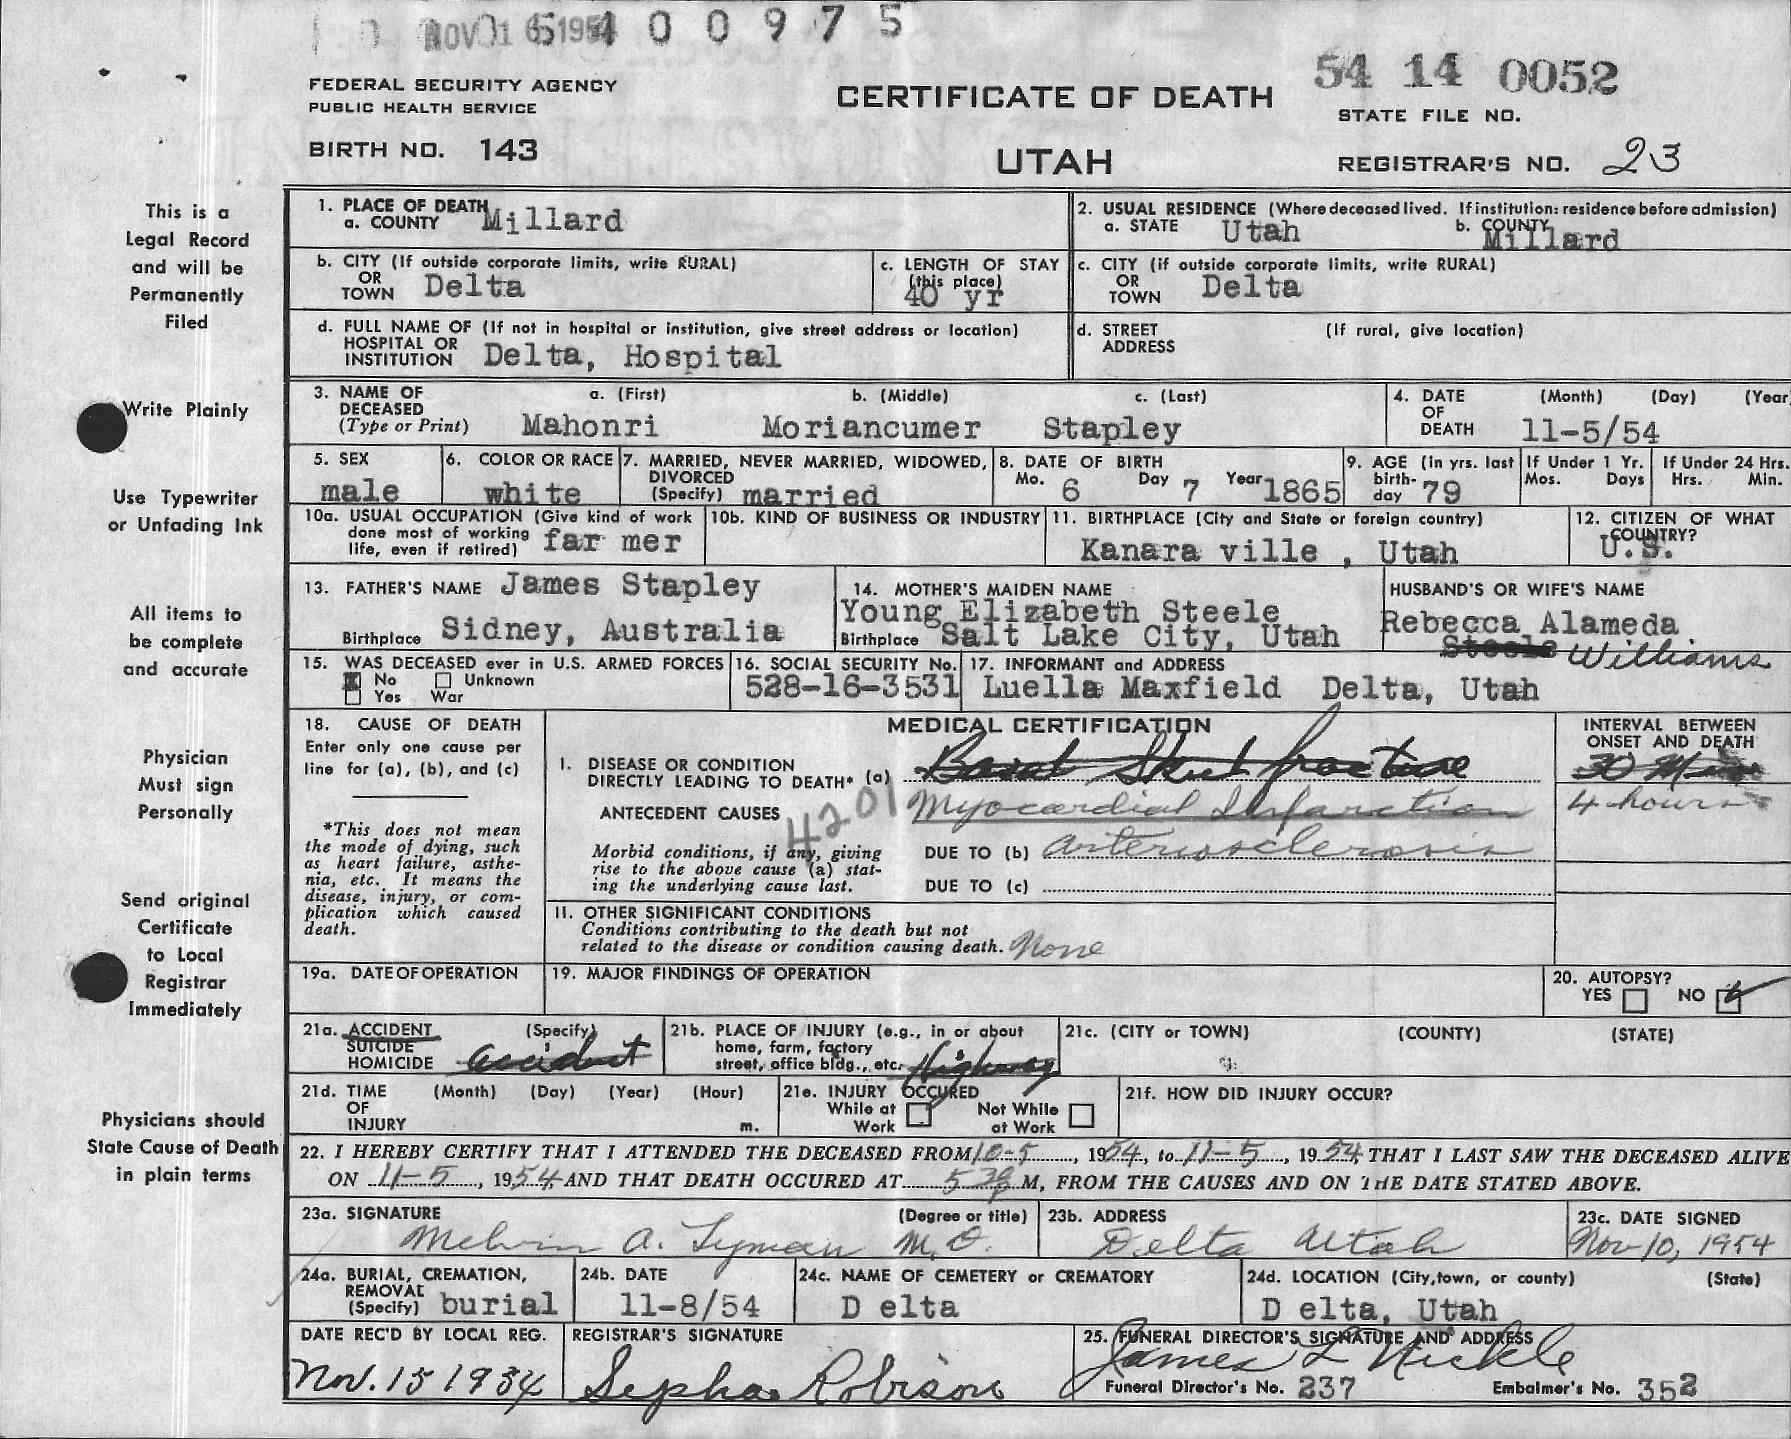 NOV 16 1954 5 4 0 0 9 7 5
54 14 0052
FEDERAL SECURITY AGENCY
PUBLIC HEALTH SERVICE
CERTIFICATE OF DEATH
STATE FILE NO.
BIRTH NO. 143
UTAH
REGISTRAR'S NO. 23
This is a
Legal Record
and will be
Permanently
Filed
Write Plainly
Use Typewriter
or Unfading Ink
All items to
be complete
and accurate
Physician
Must sign
Personally
Send original
Certificate
to Local
Registrar
Immediately
Physicians should
State Cause of Death
in plain terms
1. PLACE OF DEATH
a. COUNTY Millard
2. USUAL RESIDENCE (Where deceased lived. If institution: residence before admission)
a. STATE Utah b. COUNTY Millard
b. CITY (If outside corporate limits, write RURAL)
OR
TOWN Delta
c. LENGTH OF STAY
(this place)
40 yr
c. CITY (if outside corporate limits, write RURAL)
OR
TOWN Delta
d. FULL NAME OF (If not in hospital or institution, give street address or location)
HOSPITAL OR
INSTITUTION Delta, Hospital
d. STREET (If rural, give location)
ADDRESS
3. NAME OF a. (First) b. (Middle) c. (Last)
DECEASED
(Type or Print) Mahonri Moriancumer Stapley
4. DATE (Month) (Day) (Year
OF
DEATH 11-5/54
5. SEX
male
6. COLOR OR RACE
white
7. MARRIED, NEVER MARRIED, WIDOWED,
DIVORCED
(Specify) married
8. DATE OF BIRTH
Mo. 6 Day 7 Year 1865
9. AGE (In yrs. last
birth-
day 79
If Under 1 Yr.
Mos. Days
If Under 24 Hrs.
Hrs. Min.
10a. USUAL OCCUPATION (Give kind of work
done most of working
life, even if retired) far mer
10b. KIND OF BUSINESS OR INDUSTRY
11. BIRTHPLACE (City and State or foreign country)
Kanara ville , Utah
12. CITIZEN OF WHAT
COUNTRY?
U.S.
13. FATHER'S NAME James Stapley
Birthplace Sidney, Australia
14. MOTHER'S MAIDEN NAME
Young Elizabeth Steele
Birthplace Salt Lake City, Utah
HUSBAND'S OR WIFE'S NAME
Rebecca Alameda
Steele Williams
15. WAS DECEASED ever in U.S. ARMED FORCES
No Unknown
Yes War
16. SOCIAL SECURITY No.
528-16-3531
17. INFORMANT and ADDRESS
Luella Maxfield Delta, Utah
18. CAUSE OF DEATH
Enter only one cause per
line for (a), (b), and (c)
*This does not mean
the mode of dying, such
as heart failure, asthe-
nia, etc. It means the
disease, injury, or com-
plication which caused
death.
MEDICAL CERTIFICATION
INTERVAL BETWEEN
ONSET AND DEATH
I. DISEASE OR CONDITION
DIRECTLY LEADING TO DEATH* (a) Basal Skull fracture
30 Min
ANTECEDENT CAUSES 4201 Myocardial Infarction
4 hours
Morbid conditions, if any, giving
rise to the above cause (a) stat-
ing the underlying cause last.
DUE TO (b) arteriosclerosis
DUE TO (c)
II. OTHER SIGNIFICANT CONDITIONS
Conditions contributing to the death but not
related to the disease or condition causing death. None
19a. DATE OF OPERATION
19. MAJOR FINDINGS OF OPERATION
20. AUTOPSY?
YES NO
21a. ACCIDENT (Specify)
SUICIDE
HOMICIDE accident
21b. PLACE OF INJURY (e.g., in or about
home, farm, factory
street, office bldg., etc. Highway
21c. (CITY or TOWN) (COUNTY) (STATE)
21d. TIME (Month) (Day) (Year) (Hour)
OF
INJURY m.
21e. INJURY OCCURED
While at Work Not While at Work
21f. HOW DID INJURY OCCUR?
22. I HEREBY CERTIFY THAT I ATTENDED THE DECEASED FROM 10-5, 1954, to 11-5, 1954, THAT I LAST SAW THE DECEASED ALIVE
ON 11-5, 1954, AND THAT DEATH OCCURED AT 5 30 P M, FROM THE CAUSES AND ON THE DATE STATED ABOVE.
23a. SIGNATURE (Degree or title)
Melvin A. Lyman M.D.
23b. ADDRESS
Delta Utah
23c. DATE SIGNED
Nov-10, 1954
24a. BURIAL, CREMATION,
REMOVAL
(Specify) burial
24b. DATE
11-8/54
24c. NAME OF CEMETERY or CREMATORY
D elta
24d. LOCATION (City, town, or county) (State)
D elta, Utah
DATE REC'D BY LOCAL REG.
Nov. 15 1954
REGISTRAR'S SIGNATURE
Robison
25. FUNERAL DIRECTOR'S SIGNATURE AND ADDRESS
James L Nickle
Funeral Director's No. 237 Embalmer's No. 352